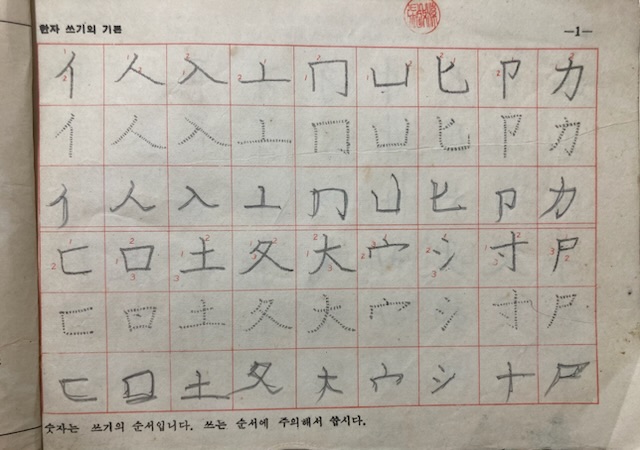 한자 쓰기의 기본 —1—
亻 人 入 ㅗ 冂 凵 匕 卩 力
亻 人 入 ㅗ 冂 凵 匕 卩 力
亻 人 入 ㅗ 冂 凵 匕 卩 力
匸 口 土 夂 大 宀 氵 寸 尸
匸 口 土 夂 大 宀 氵 寸 尸
匸 口 土 夂 大 宀 氵 寸 尸
숫자는 쓰기의 순서입니다. 쓰는 순서에 주의해서 씁시다.